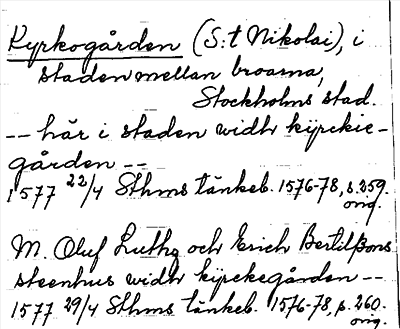 Kyrkogården (S:t Nikolai), i
staden mellan broarna,
Stockholms stad.
-- här i staden widh kijrckie-
gården --
1577 22/4 Sthms tänkeb. 1576-78, s. 259.
orig.
M. Oluf Luthz och Erich Bertilßons
steenhus widh kijrckegården --
1577 29/4 Sthms tänkeb. 1576-78, s. 260.
orig.